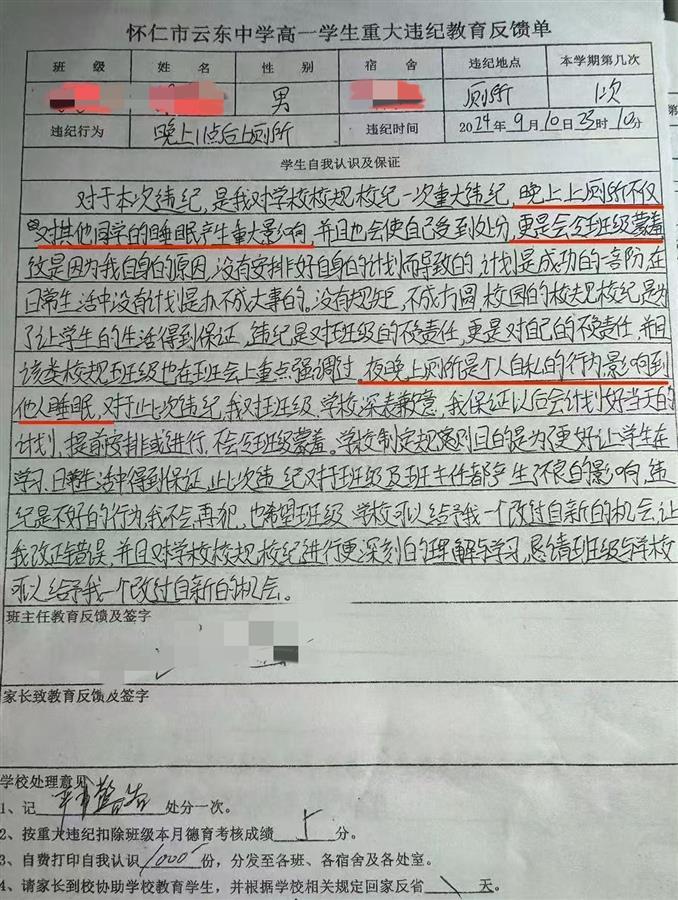 怀仁市云东中学高一学生重大违纪教育反馈单
班 级 姓 名 性 别 宿 舍 违纪地点 本学期第几次
男 厕所 1次
违纪行为 晚上11点后上厕所 违纪时间 2024年9月10日23时10分
学生自我认识及保证
对于本次违纪,是我对学校校规校纪一次重大违纪,晚上上厕所不仅
对其他同学的睡眠产生重大影响,并且也会使自己受到处分,更是会令班级蒙羞
这是因为我自身的原因,没有安排好自身的计划而导致的,计划是成功的一部阶,在
日常生活中没有计划是办不成大事的。没有规矩,不成方圆,校园的校规校纪,是为
了让学生的生活得到保证,违纪是对班级的不负责任,更是对自己的不负责任,并且
该类校规班级也在班会上重点强调过,夜晚上厕所是个人自私的行为,影响到
他人睡眠,对于此次违纪,我对班级、学校深表歉意,我保证以后会计划好当天的
计划,提前安排或进行,不会令班级蒙羞。学校制定规章则目的是为了更好让学生在
学习、日常生活中得到保证,此次违纪对于班级及班主任都产生了不良的影响,违
纪是不好的行为,我不会再犯,也希望班级、学校可以给予我一个改过自新的机会,让
我改正错误,并且对学校校规、校纪进行更深刻的理解与学习,恳请班级与学校
可以给予我一个改过自新的机会。
班主任教育反馈及签字
家长致教育反馈及签字
学校处理意见
1、记 严重警告 处分一次。
2、按重大违纪扣除班级本月德育考核成绩 分。
3、自费打印自我认识 1000 份,分发至各班、各宿舍及各处室。
4、请家长到校协助学校教育学生,并根据学校相关规定回家反省 \ 天。